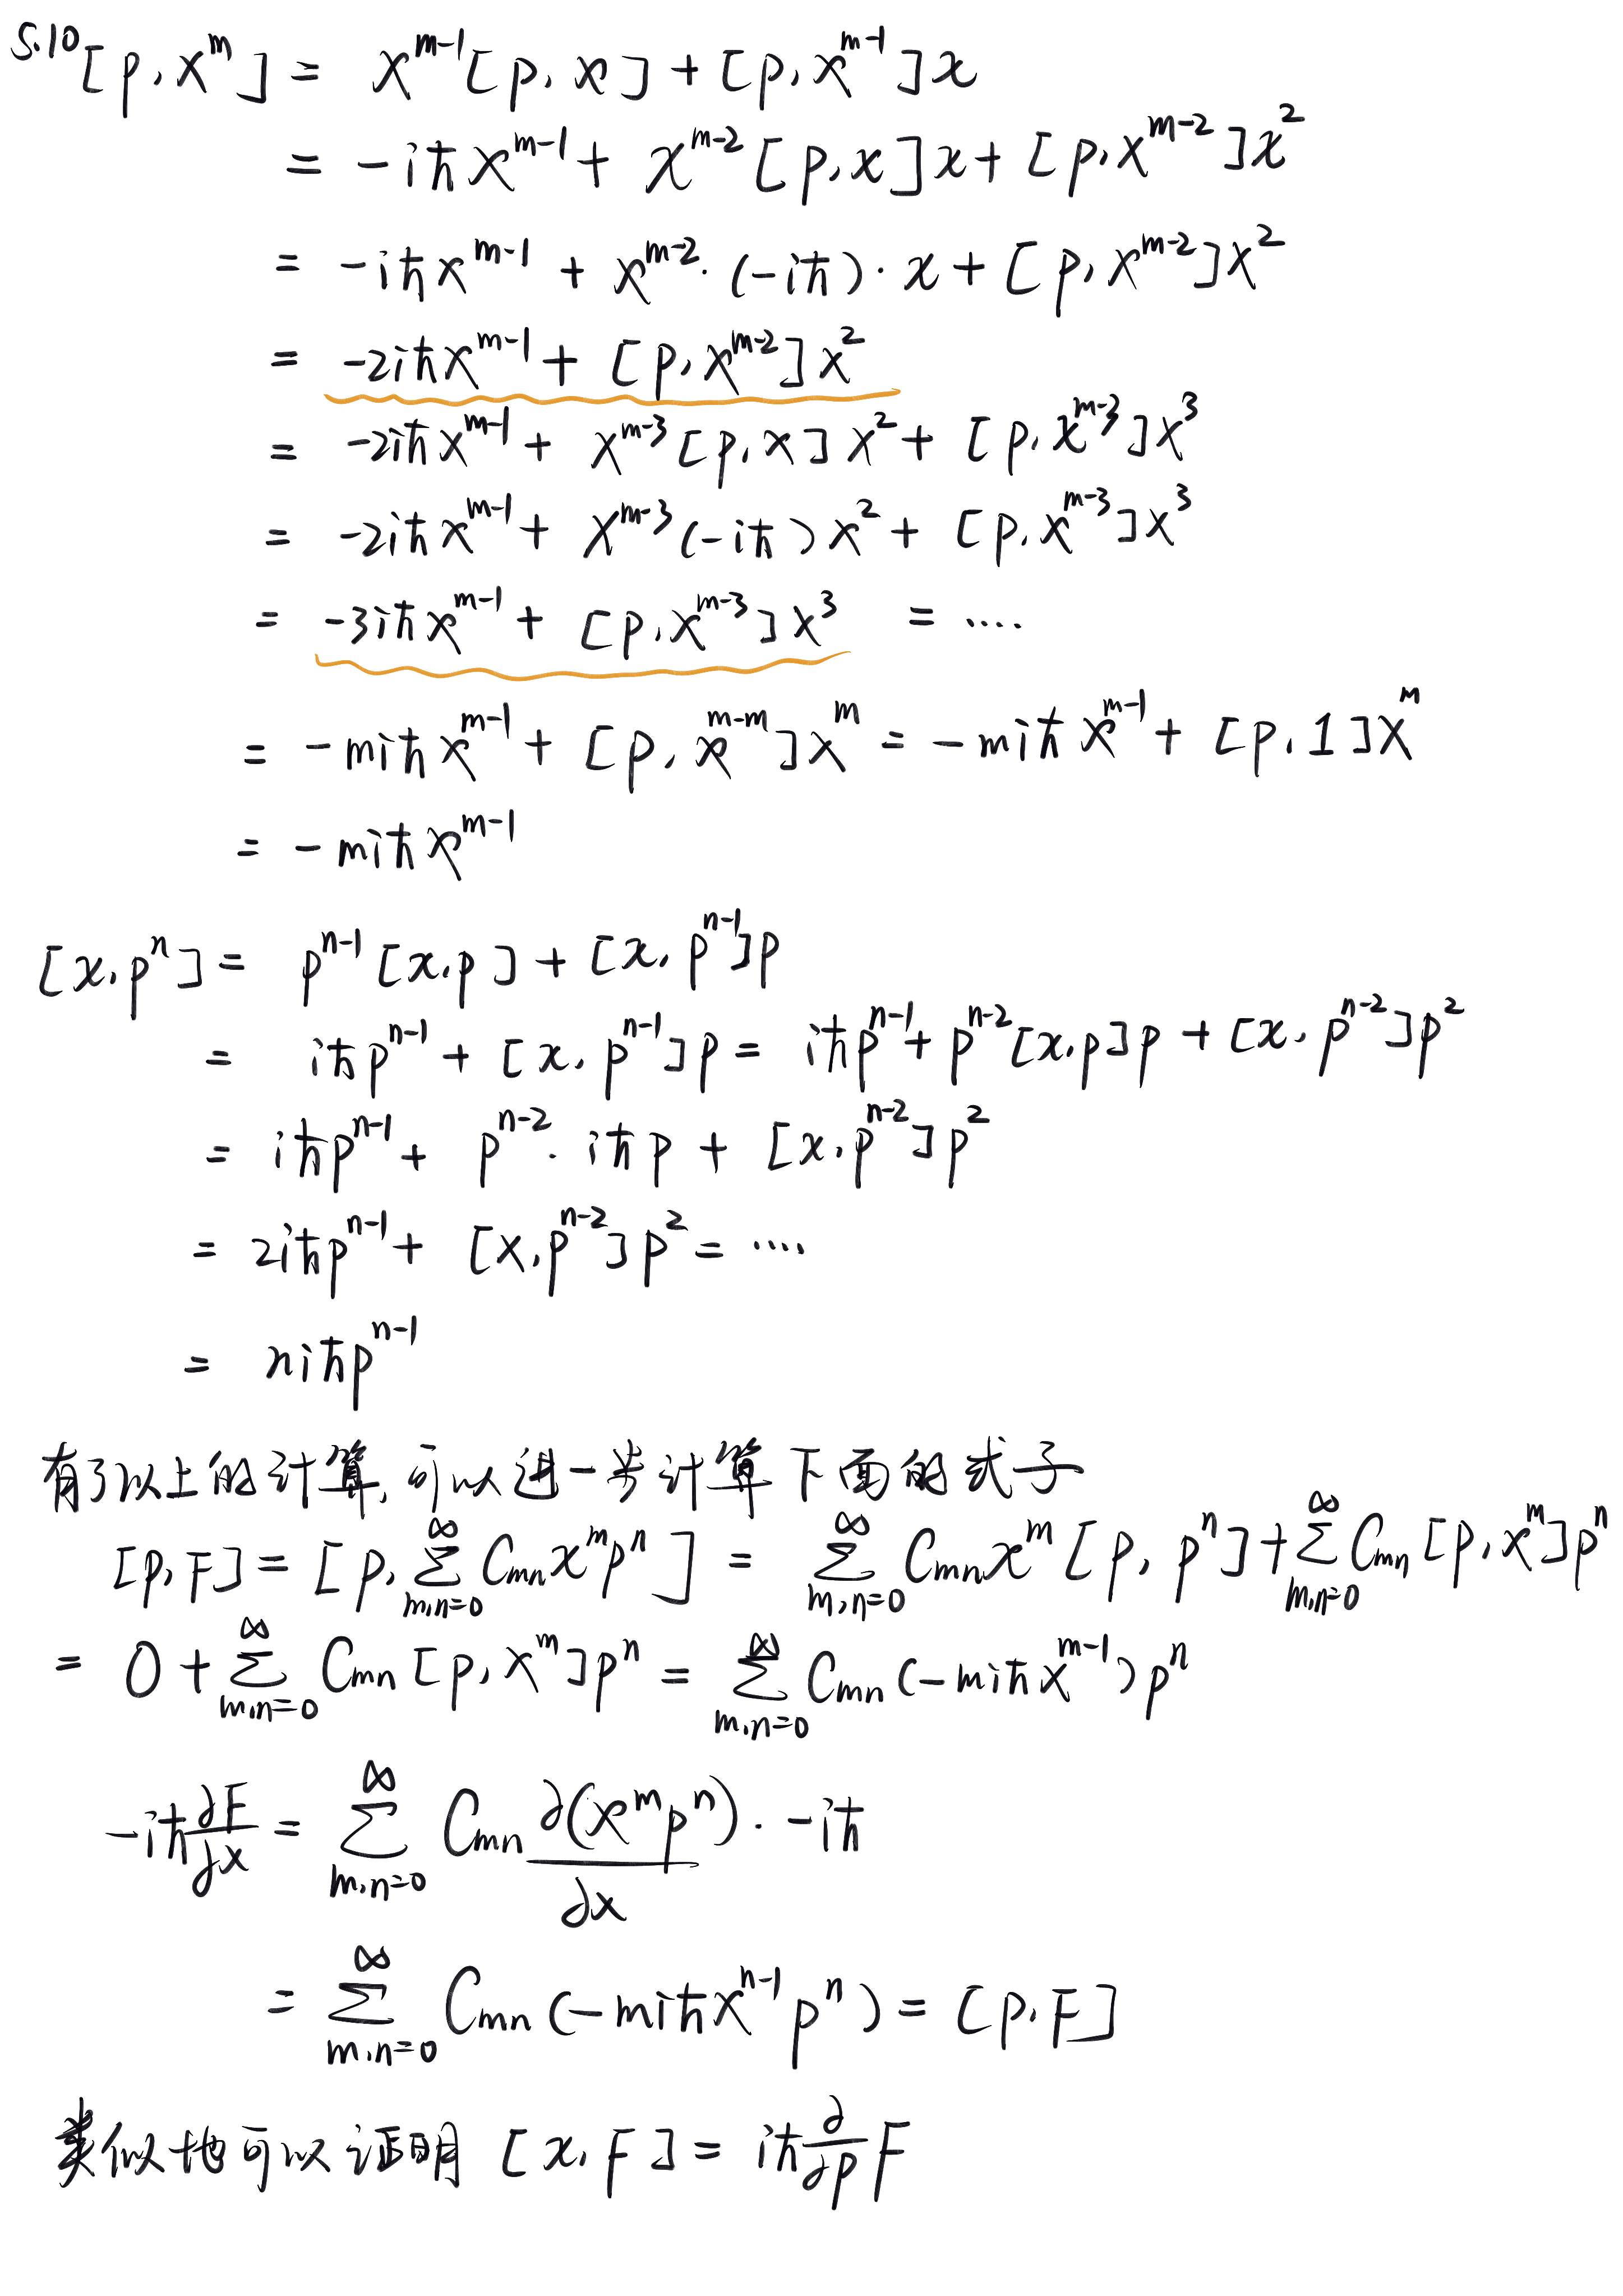 5.10 [p, x^m] = x^{m-1}[p, x] + [p, x^{m-1}]x
= -iħx^{m-1} + x^{m-2}[p, x]x + [p, x^{m-2}]x^2
= -iħx^{m-1} + x^{m-2}·(-iħ)·x + [p, x^{m-2}]x^2
= -2iħx^{m-1} + [p, x^{m-2}]x^2
= -2iħx^{m-1} + x^{m-3}[p, x]x^2 + [p, x^{m-3}]x^3
= -2iħx^{m-1} + x^{m-3}(-iħ)x^2 + [p, x^{m-3}]x^3
= -3iħx^{m-1} + [p, x^{m-3}]x^3 = ····
= -miħx^{m-1} + [p, x^{m-m}]x^m = -miħx^{m-1} + [p, 1]x^m
= -miħx^{m-1}
[x, p^n] = p^{n-1}[x, p] + [x, p^{n-1}]p
= iħp^{n-1} + [x, p^{n-1}]p = iħp^{n-1} + p^{n-2}[x, p]p + [x, p^{n-2}]p^2
= iħp^{n-1} + p^{n-2}·iħp + [x, p^{n-2}]p^2
= 2iħp^{n-1} + [x, p^{n-2}]p^2 = ····
= niħp^{n-1}
有了以上的计算,可以进一步计算下面的式子
[p, F] = [p, ∑_{m,n=0}^∞ C_{mn}x^m p^n] = ∑_{m,n=0}^∞ C_{mn}x^m[p, p^n] + ∑_{m,n=0}^∞ C_{mn}[p, x^m]p^n
= 0 + ∑_{m,n=0}^∞ C_{mn}[p, x^m]p^n = ∑_{m,n=0}^∞ C_{mn}(-miħx^{m-1})p^n
-iħ ∂F/∂x = ∑_{m,n=0}^∞ C_{mn} ∂(x^m p^n)/∂x · -iħ
= ∑_{m,n=0}^∞ C_{mn}(-miħx^{n-1}p^n) = [p, F]
类似地可以证明 [x, F] = iħ ∂/∂p F